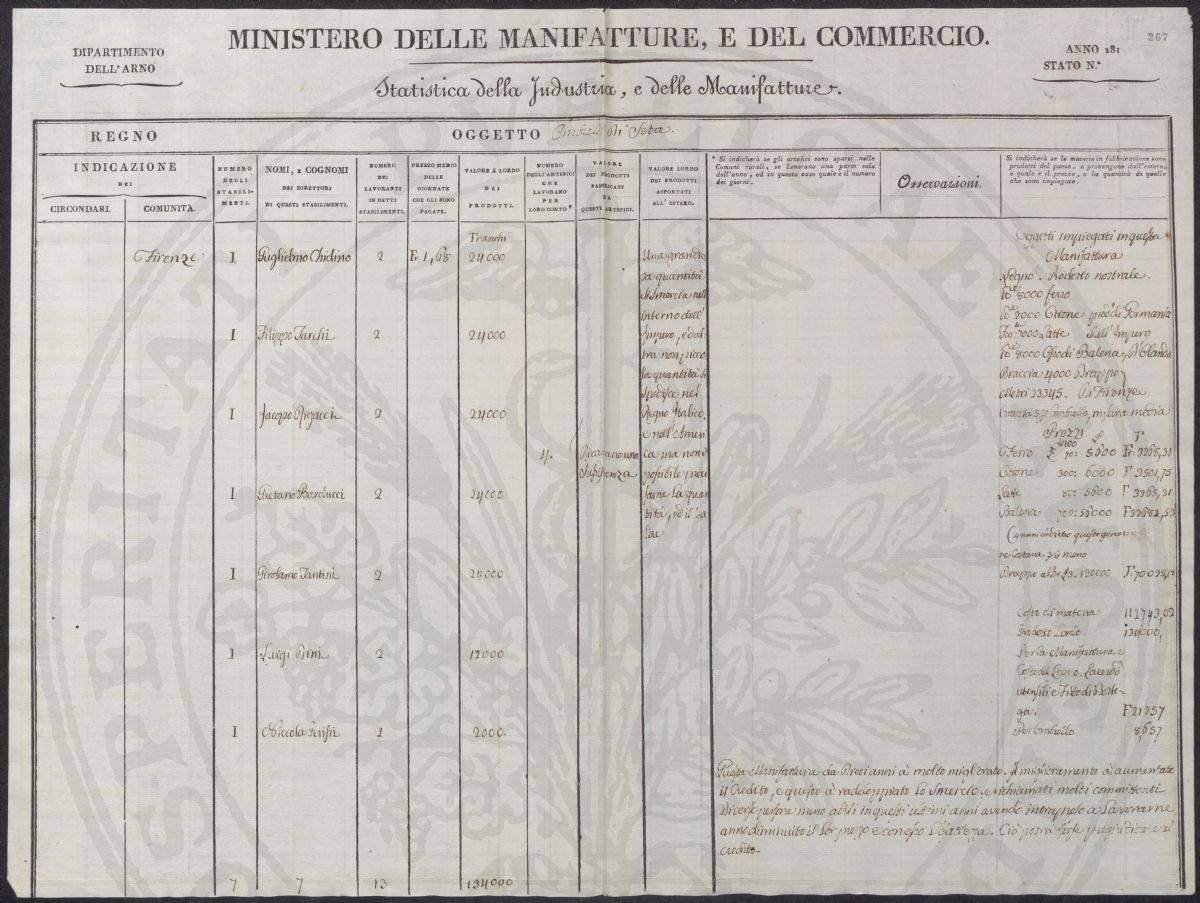 DIPARTIMENTO
DELL'ARNO
MINISTERO DELLE MANIFATTURE, E DEL COMMERCIO.
267
ANNO 181
STATO N.º
Statistica della Industria, e delle Manifatture.
REGNO
OGGETTO di Seta.
INDICAZIONE
DEI
CIRCONDARI.
COMUNITÀ.
NUMERO
DEGLI
STABILI-
MENTI.
NOMI, E COGNOMI
DEI DIRETTORI
DI QUESTI STABILIMENTI.
NUMERO
DEI
LAVORANTI
IN DETTI
STABILIMENTI.
PREZZO MEDIO
DELLE
GIORNATE
CHE GLI SONO
PAGATE.
VALORE A LORDO
DEI
PRODOTTI.
NUMERO
DEGLI ARTEFICI
CHE
LAVORANO
PER
LORO CONTO *
VALORE
DEI PRODOTTI
FABBRICATI
DA
QUESTI ARTEFICI.
VALORE LORDO
DEI PRODOTTI
ASPORTATI
ALL'ESTERO.
* Si indicherà se gli artefici sono sparsi nelle
Comuni rurali, se lavorano una parte sola
dell'anno, ed in questo caso quale è il numero
dei giorni.
Osservazioni.
Si indicherà se le materie in fabbricazione sono
prodotti del paese, o provengono dall'estero,
e quale è il prezzo, e la quantità di quelle
che sono impiegate.
Franchi
Firenze 1 Guglielmo Chidino 2 Fr. 1,68 24000
1 Filippo Tarchi 2 24000
1 Jacopo Rigacci 2 24000
4. Ricavano una
Sussistenza
1 Gaetano Barducci 2 24000
1 Girolamo Tantini 2 24000
1 Luigi Brini 2 12000
1 Niccola 1 2000.
7 7 13 134000
Una grandio
sa quantità
si Smercia nell
interno dell'
Impero, ed al
tra non picco
la quantità si
spedisce nel
Regno Italico,
e nell'Ameri
ca ma non è
possibile pneci
sarne la quan
tità, ed il va
lore
Oggetti impiegati in questa
Manifattura
Legno. Prodotto nostrale.
8000 ferro
2000 Ottone prodo. di Germania
7000 Latte dell'Impero
8000 Ossi di Balena, d'Olanda
Braccia 4000 Drappo
Metri 23345. Di Firenze
misura media
Prezzi
Ferro 70: 5600 Fr. 3265,31
Ottone 300: 6000 F. 3501,75
Latte 80: 5600 F 3265,31
Balena 700: 56000 F 32682,50
4 anni addietro questo genere
costava 3/4 meno
Drappo al Br. £3. 120000 F. 70025,12
Costo di materia 112743,02
Prodotto Lordo 134000,
Per la Manifattura e
Costo del Legno, Lavoro
utensili e Fitto di Botte-
ga. F 21257
Per Ombrello 8,657
Questa Manifattura da Dieci anni à molto migliorato. Il miglioramento à aumentato
il Credito, e questo à raddoppiato lo Smercio. e richiamati molti committenti
Diverse persone meno abili in questi ultimi anni avendo intrapreso a Lavorarne
anno diminuito il lor prezzo e con esso l'esattezza. Ciò potrà forse pregiudicare al
credito.